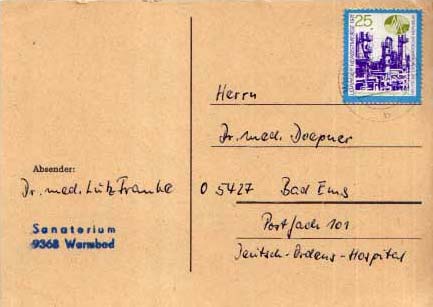 25
Herrn
Dr. med. Doepner
Absender:
Dr. med. Lutz Franke
O 5427 Bad Ems
Sanatorium
9368 Warmbad
Postfach 101
Deutsch-Ordens-Hospital